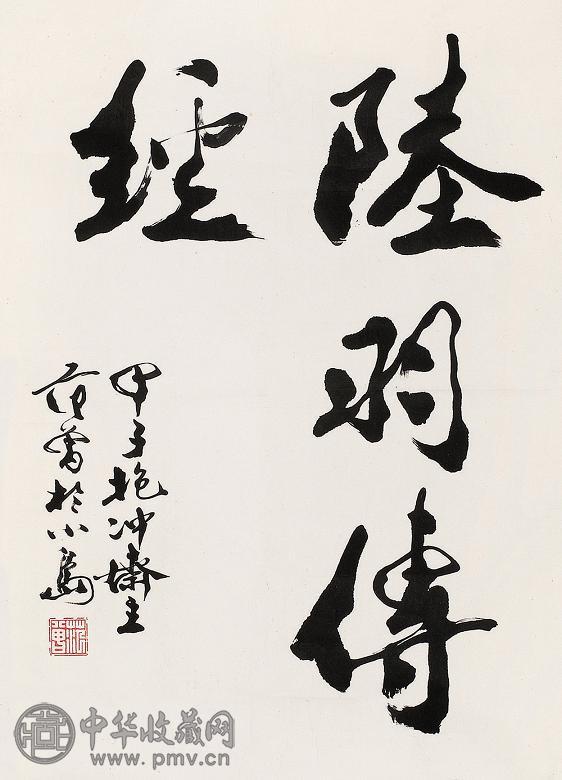 陸羽傳
經
甲子抱冲齋主
范曾於小島
范曾
中华收藏网
www.pmv.cn